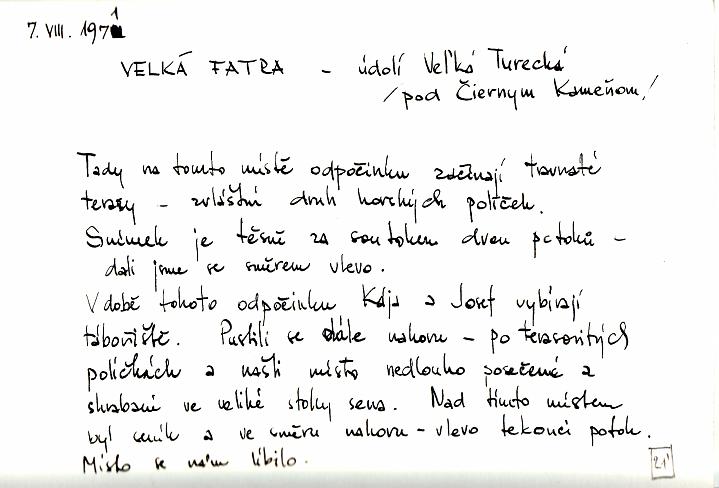 7. VIII. 1971
VELKÁ FATRA - údolí Veľká Turecká
/pod Čiernym Kameňom/
Tady na tomto místě odpočinku začínají travnaté
terasy - zvláštní druh horských políček.
Snímek je těsně za soutokem dvou potoků -
dali jsme se směrem vlevo.
V době tohoto odpočinku Kája a Josef vybírají
tábořiště. Pustili se dále nahoru - po terasovitých
políčkách a našli místo nedlouho posečené a
shrabané ve veliké stohy sena. Nad tímto místem
byl seník a ve směru nahoru - vlevo tekoucí potok.
Místo se nám líbilo.
21